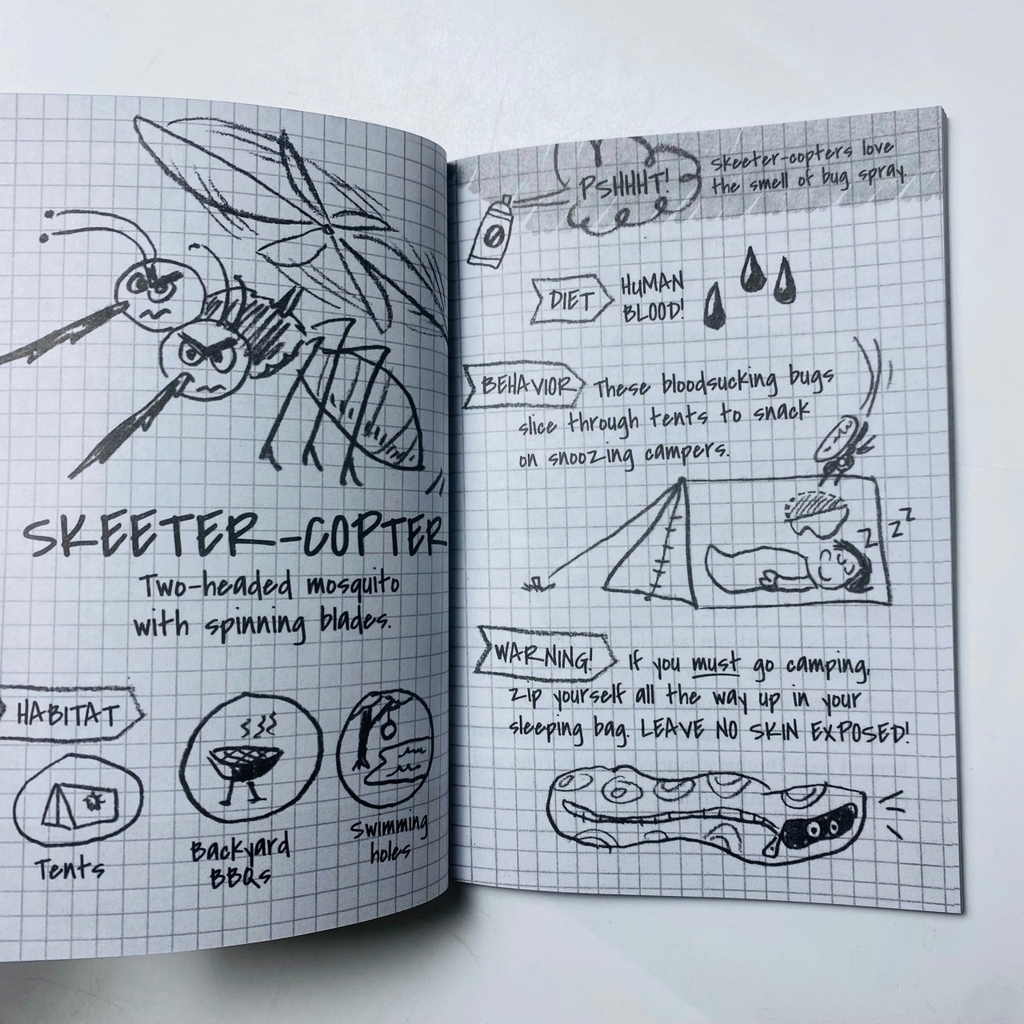 SKEETER-COPTER
Two-headed mosquito
with spinning blades.
HABITAT
Tents
Backyard
BBQs
Swimming
holes
PSHHHT!
Skeeter-copters love
the smell of bug spray.
DIET
HUMAN
BLOOD!
BEHAVIOR
These bloodsucking bugs
slice through tents to snack
on snoozing campers.
Z Z Z
WARNING!
If you must go camping,
zip yourself all the way up in your
sleeping bag. LEAVE NO SKIN EXPOSED!